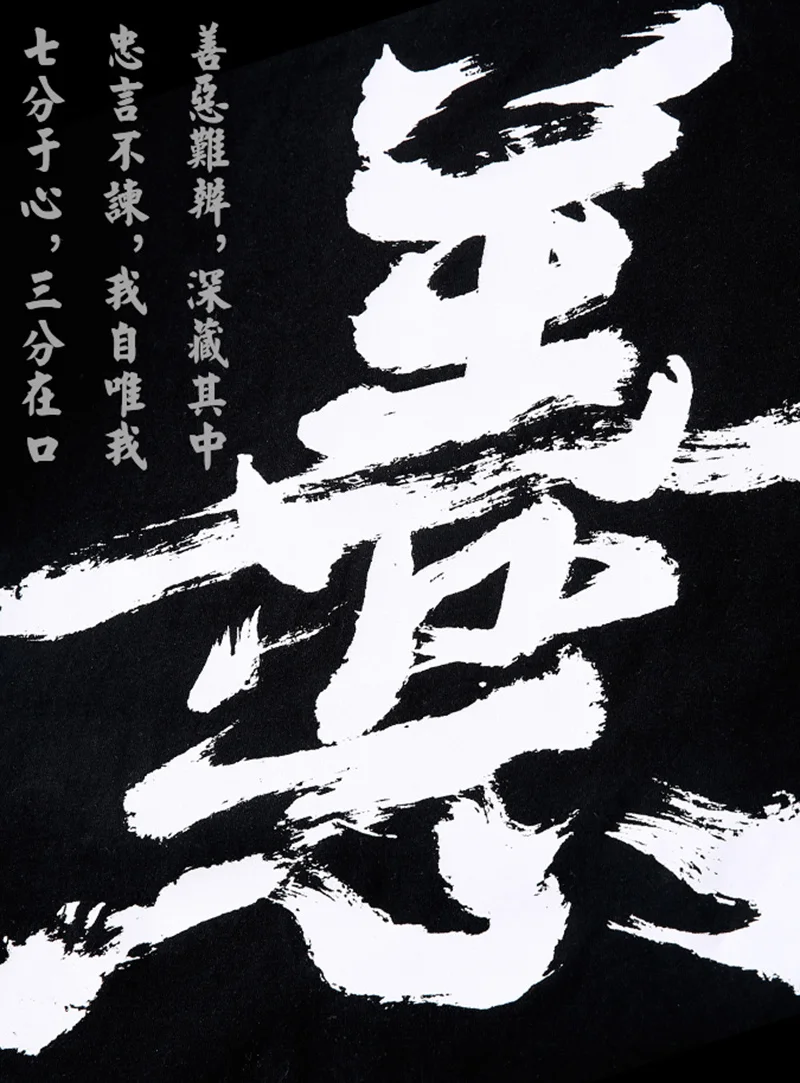 善惡難辨，深藏其中
忠言不諫，我自唯我
七分于心，三分在口